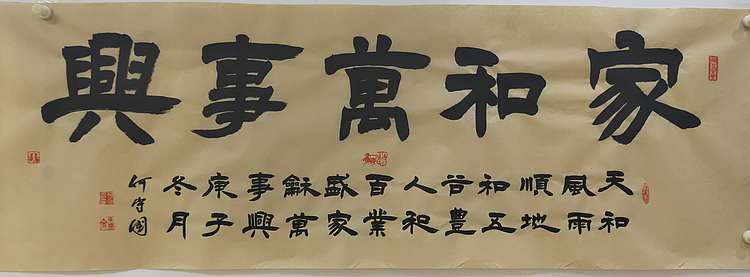 家和萬事興
天和
風雨
順地
和五
谷豊
人和
百業
盛家
龢萬
事興
庚子
冬月
何守國